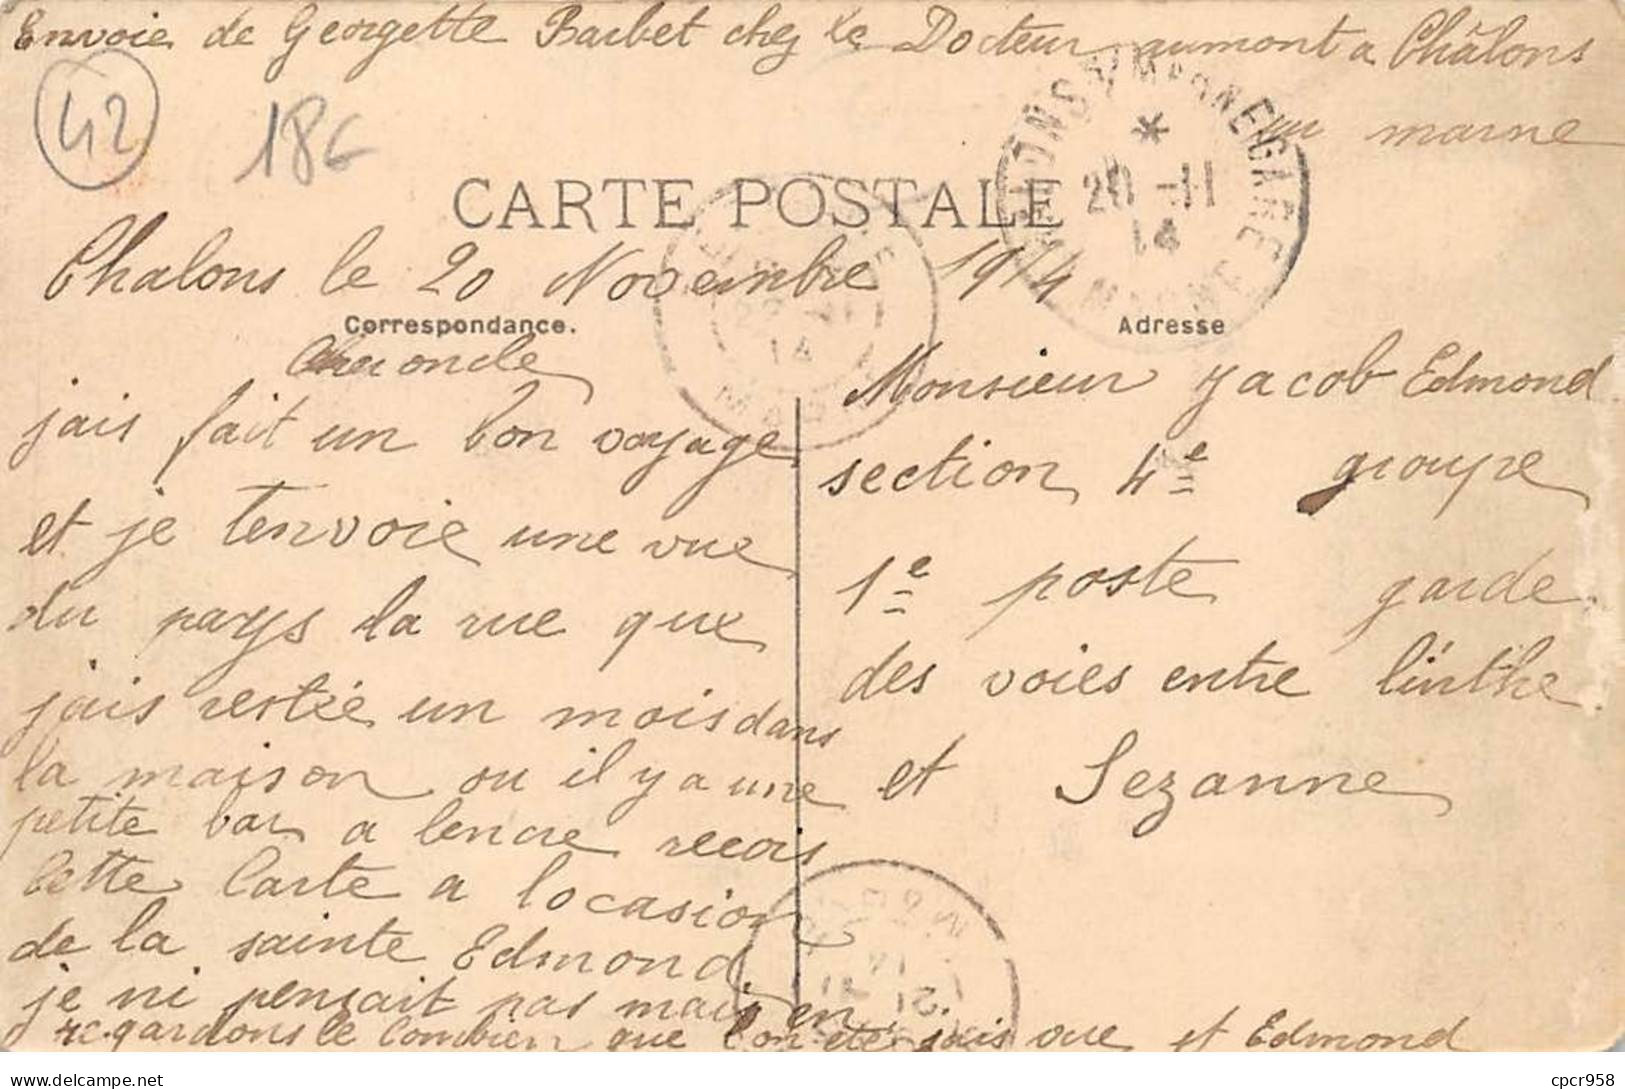 Envoie de Georgette Barbet chez le Docteur aumont a Châlons
sur marne
42
186
CARTE POSTALE
CHALONS S/ MARNE GARE
*
20 -11
14
MARNE
Chalons le 20 Novembre 1914
Correspondance.
Cher oncle
jais fait un bon voyage
et je tenvoie une vue
du pays la rue que
jais restée un mois dans
la maison ou il y a une
petite bar a lencre recois
cette Carte a locasion
de la sainte Edmond
je ni pensait pas mais en
regardons le combien que lon été jais vue st Edmond
Adresse
Monsieur Jacob Edmond
section 4e groupe
1e poste garde
des voies entre linthe
et Sezanne
22 -11
14
MARNE
21 -11
14
cpcr958